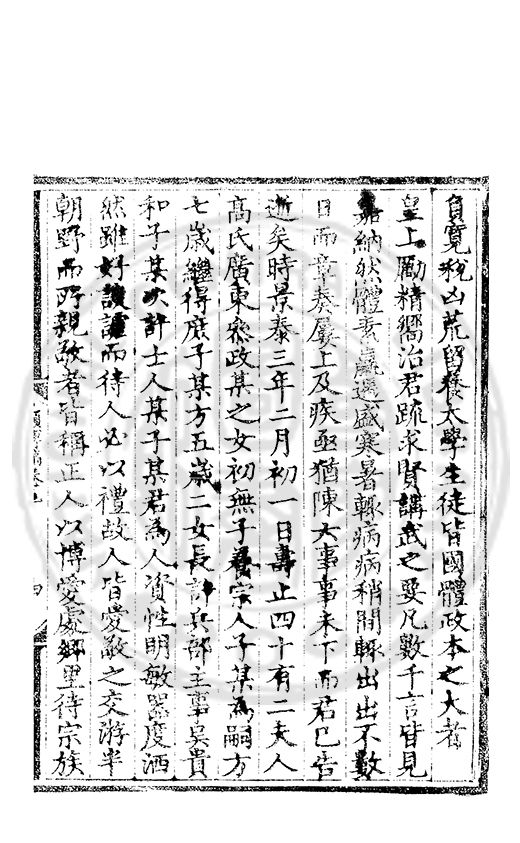 負寬稅凶荒留養大學生徒皆國體政本之大者
皇上勵精嚮治君疏求賢講武之要凡數千言皆見
嘉納然體素羸遇盛寒暑輒病病稍間輒出出不數
日而章奏屢上及疾亟猶陳大事事未下而君已告
逝矣時景泰三年二月初一日壽止四十有二夫人
高氏廣東參政某之女初無子養宗人子某為嗣方
七歲繼得庶子某方五歲二女長許兵部主事吳貴
和子某次許士人某子某君為人資性明敏器度洒
然雖好謔而待人必以禮故人皆愛敬之交游半
朝野而所親敬者皆稱正人以博愛處鄉里待宗族
四